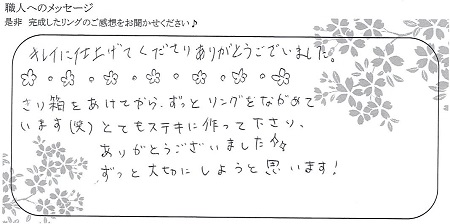 職人へのメッセージ
是非 完成したリングのご感想をお聞かせください♪
キレイに仕上げてくださりありがとうございました。
さり箱をあけてから、ずっとリングをながめて
います(笑)とてもステキに作って下さり、
ありがとうございました
ずっと大切にしようと思います!